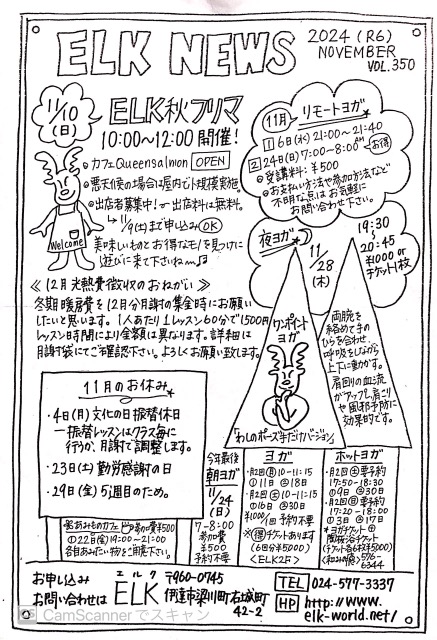 ELK NEWS
2024 (R6)
NOVEMBER
VOL.350
11/10
(日)
ELK秋フリマ
10:00~12:00 開催!
カフェQueensalmon OPEN
悪天候の場合は屋内で小規模実施。
出店者募集中! 出店料は無料。
→11/9(土)まで申込みOK
美味しいものとお得なモノを見つけに
遊びに来て下さいね~♫
Welcome
11月 リモートヨガ
①6日(水)21:00~21:40
②24日(日)7:00~8:00
お得
受講料:¥500
お支払い方法や参加方法など
不明な点はお気軽に
お問い合わせ下さい。
夜ヨガ
11/28
(木)
19:30
~
20:45
¥1000 or
チケット1枚
《12月光熱費徴収のおねがい》
冬期暖房費を12月分月謝の集金時にお願い
したいと思います。1人あたり1レッスン60分で1,500円
レッスン時間により金額は異なります。詳細は
月謝袋にてご確認下さい。よろしくお願い致します。
ワンポイント
ヨガ
「わしのポーズ手だけバージョン」
両腕を
絡めて手の
ひらを合わせ
呼吸をしながら
上下に動かす。
肩回りの血流
がアップし肩こり
や風邪予防に
効果的です。
11月のお休み
・4日(月)文化の日振替休日
→振替レッスンはクラス毎に
行うか、月謝で調整します。
・23日(土)勤労感謝の日
・29日(金)5週目のため。
あみものカフェ
参加費¥500
①22日(金)19:00~21:00
各自あみたい物をご用意下さい。
今年最後
朝ヨガ
11/24
(日)
7-8:00
参加費
¥500
予約不要
ヨガ
・月2回(月)10-11:15
①11日 ②18日
・月2回(土)10-11:15
①16日 ②30日
¥1000/1回 予約不要
得チケットあります
(6回分¥5000)
<ELK2F>
ホットヨガ
・月2回(土)要予約
17:50-18:30
①9日 ②30日
・月2回(日)要予約
17:20-18:00
①3日 ②17日
*ヨガチケット
(チケット各1枚¥5000)
576-
6344
お申し込み
お問い合わせは
エルク
ELK
〒960-0745
伊達市梁川町右城町
42-2
TEL 024-577-3337
HP http://www.
elk-world.net/
CamScannerでスキャン